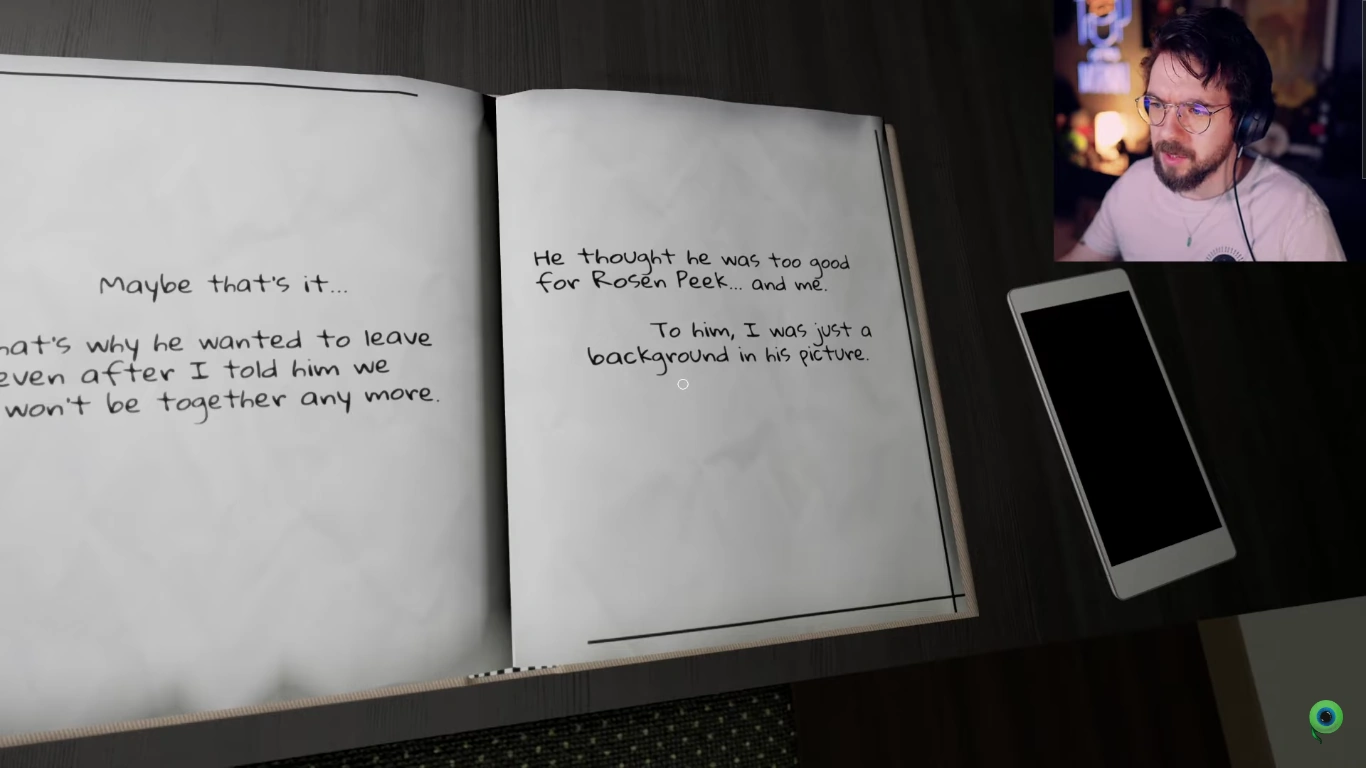 Maybe that's it...
hat's why he wanted to leave
even after I told him we
won't be together any more.
He thought he was too good
for Rosen Peek... and me.
To him, I was just a
background in his picture.